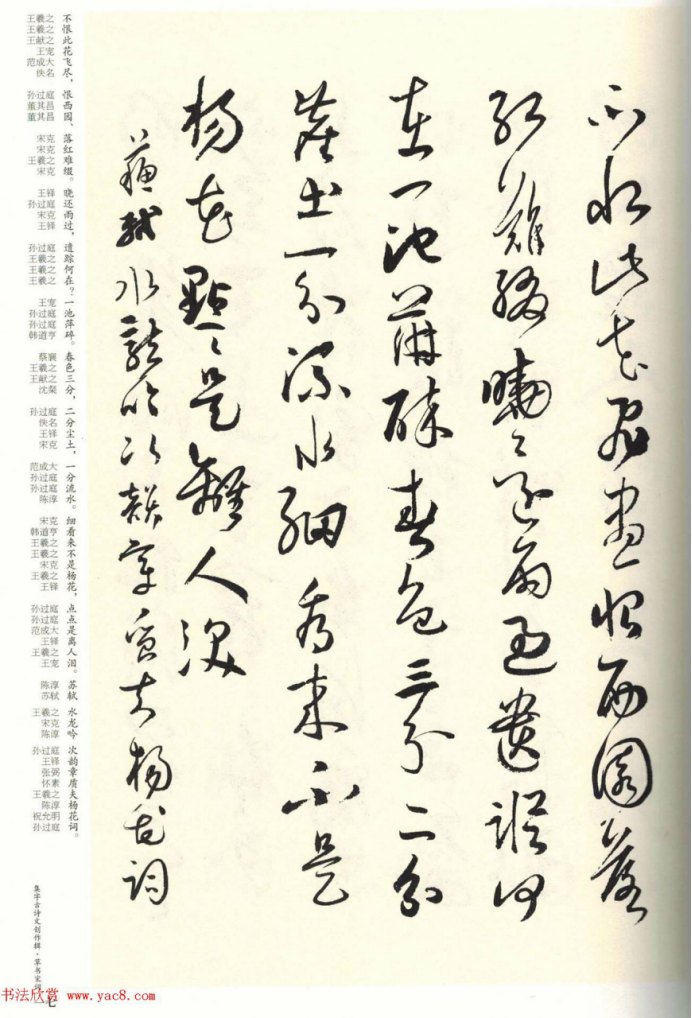 不恨此花飞尽恨西园落
红難缀曉还雨過遗踪何
在一池萍碎春色三分二分
塵土一分流水细看来不是
杨花點點是離人泪
蘇軾水龍吟次韵章质夫杨花词
不恨此花飞尽，
王羲之 王羲之 王献之 王宠 范成大 佚名
恨西园、
孙过庭 董其昌 董其昌
落红难缀。
宋克 宋克 王羲之 宋克
晓还雨过，
王铎 孙过庭 宋克 王铎
遗踪何在？
孙过庭 王羲之 王羲之 王羲之
一池萍碎。
王宠 孙过庭 孙过庭 韩道亨
春色三分，
蔡襄 王羲之 王献之 沈粲
二分尘土，
孙过庭 佚名 王铎 宋克
一分流水。
范成大 孙过庭 孙过庭 陈淳
细看来不是杨花，
宋克 韩道亨 王羲之 王羲之 宋克 王羲之 王铎
点点是离人泪。
孙过庭 孙过庭 范成大 王铎 王羲之 王宠
苏轼
陈淳 苏轼
水龙吟
王羲之 宋克 陈淳
次韵章质夫杨花词。
孙过庭 王铎 张弼 怀素 王羲之 陈淳 祝允明 孙过庭
集字古诗文创作辑·草书宋词
一七
书法欣赏 www.yac8.com